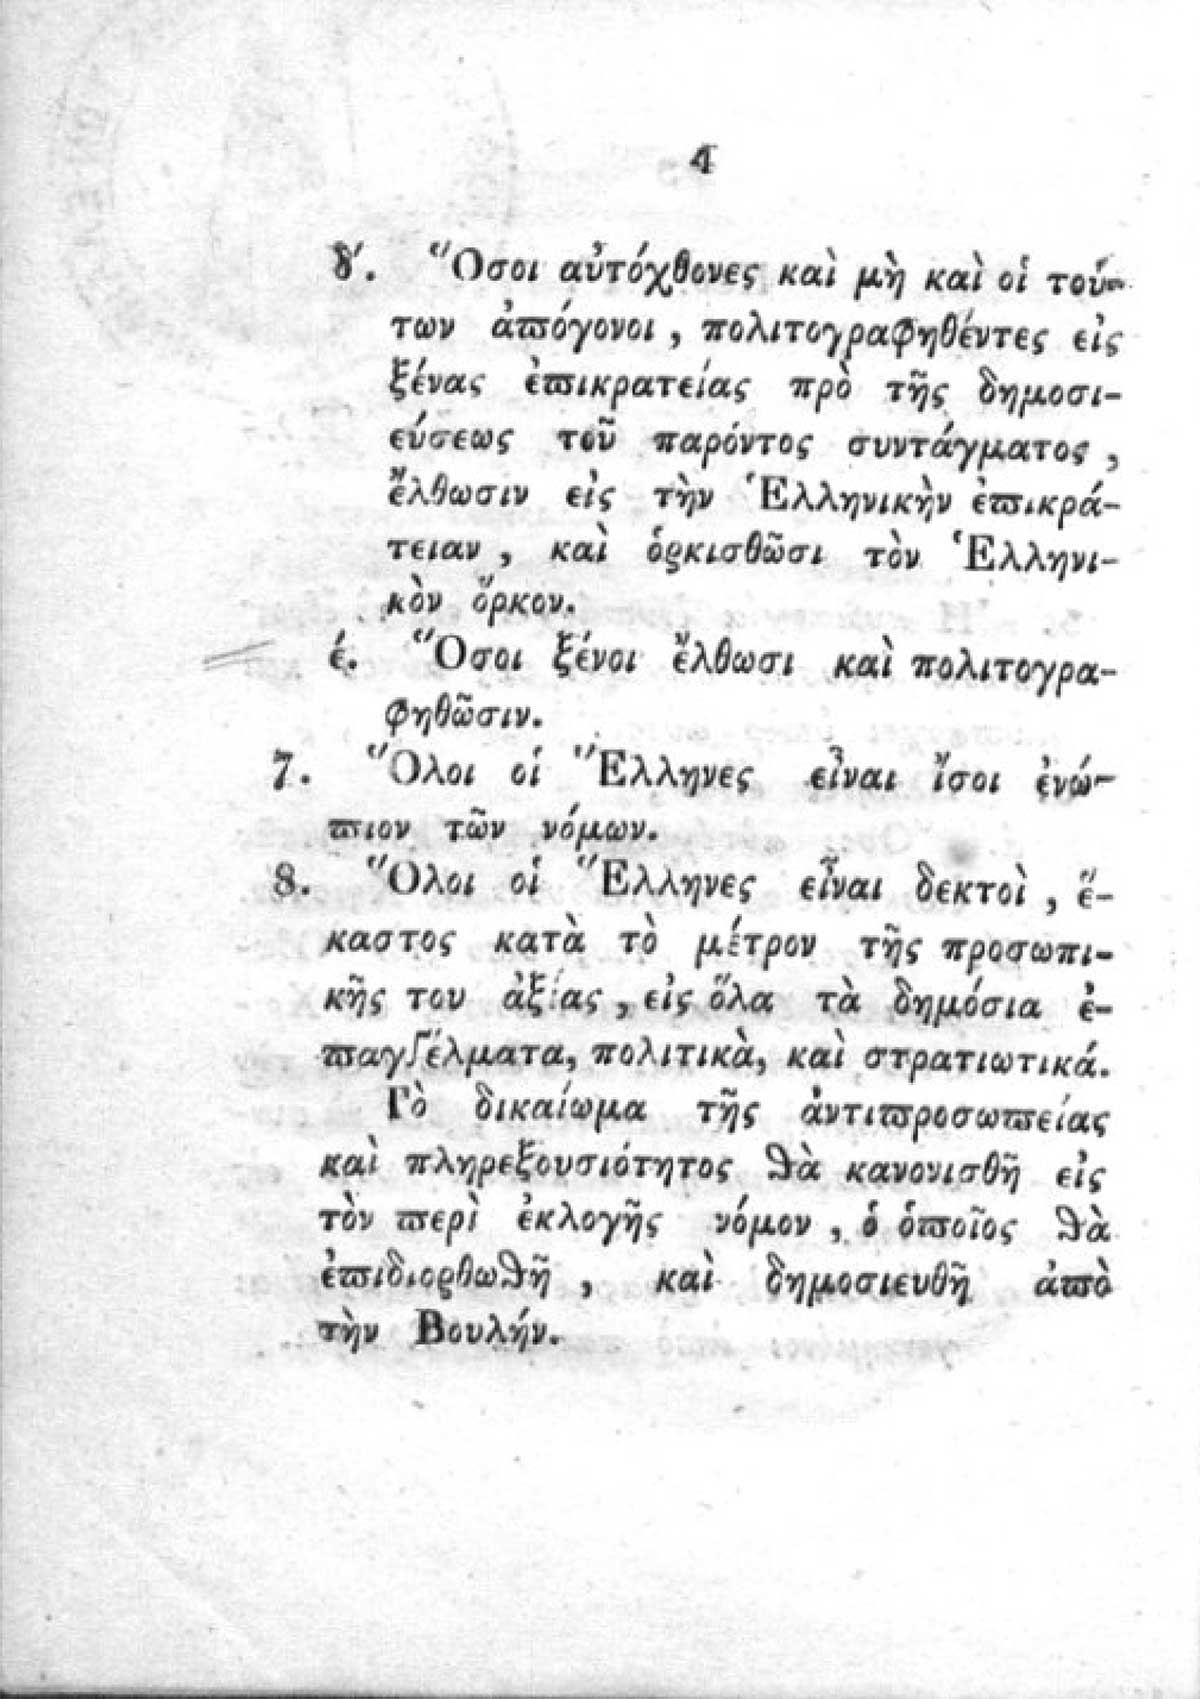 4
δ΄. Ὅσοι αὐτόχθονες καὶ μὴ καὶ οἱ τού-
των ἀϖόγονοι, πολιτογραφηθέντες εἰς
ξένας ἐϖικρατείας πρὸ τῆς δημοσι-
εύσεως τοῦ παρόντος συντάγματος,
ἔλθωσιν εἰς τὴν Ἑλληνικὴν ἐϖικρά-
τειαν, καὶ ὁρκισθῶσι τὸν Ἑλληνι-
κὸν ὅρκον.
έ. Ὅσοι ξένοι ἔλθωσι καὶ πολιτογρα-
φηθῶσιν.
7. Ὅλοι οἱ Ἕλληνες εἶναι ἴσοι ἐνώ-
ϖιον τῶν νόμων.
8. Ὅλοι οἱ Ἕλληνες εἶναι δεκτοὶ, ἕ-
καστος κατὰ τὸ μέτρον τῆς προσωπι-
κῆς του ἀξίας, εἰς ὅλα τὰ δημόσια ἐ-
ϖαγγέλματα, πολιτικὰ, καὶ στρατιωτικά.
Τὸ δικαίωμα τῆς ἀντιϖροσωϖείας
καὶ πληρεξουσιότητος θὰ κανονισθῆ εἰς
τὸν ϖερὶ ἐκλογῆς νόμον, ὁ ὁϖοῖος θὰ
ἐϖιδιορθωθῆ, καὶ δημοσιευθῆ ἀϖὸ
τὴν Βουλήν.